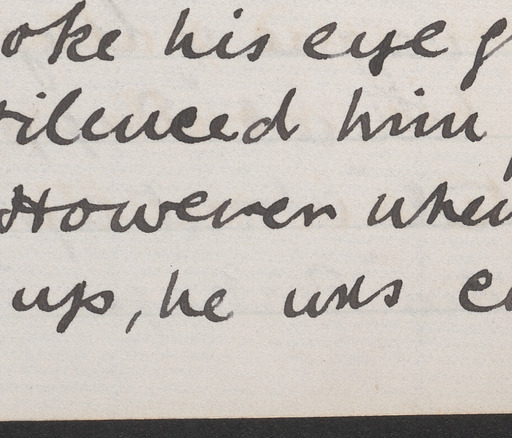 oke his eye g
silenced him
However when
up, he was e